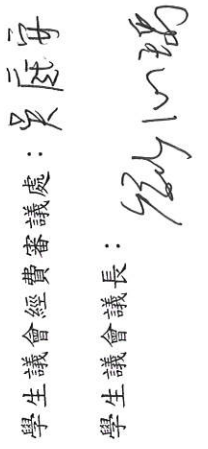 學生議會經費審議處：吳庭安
學生議會議長：